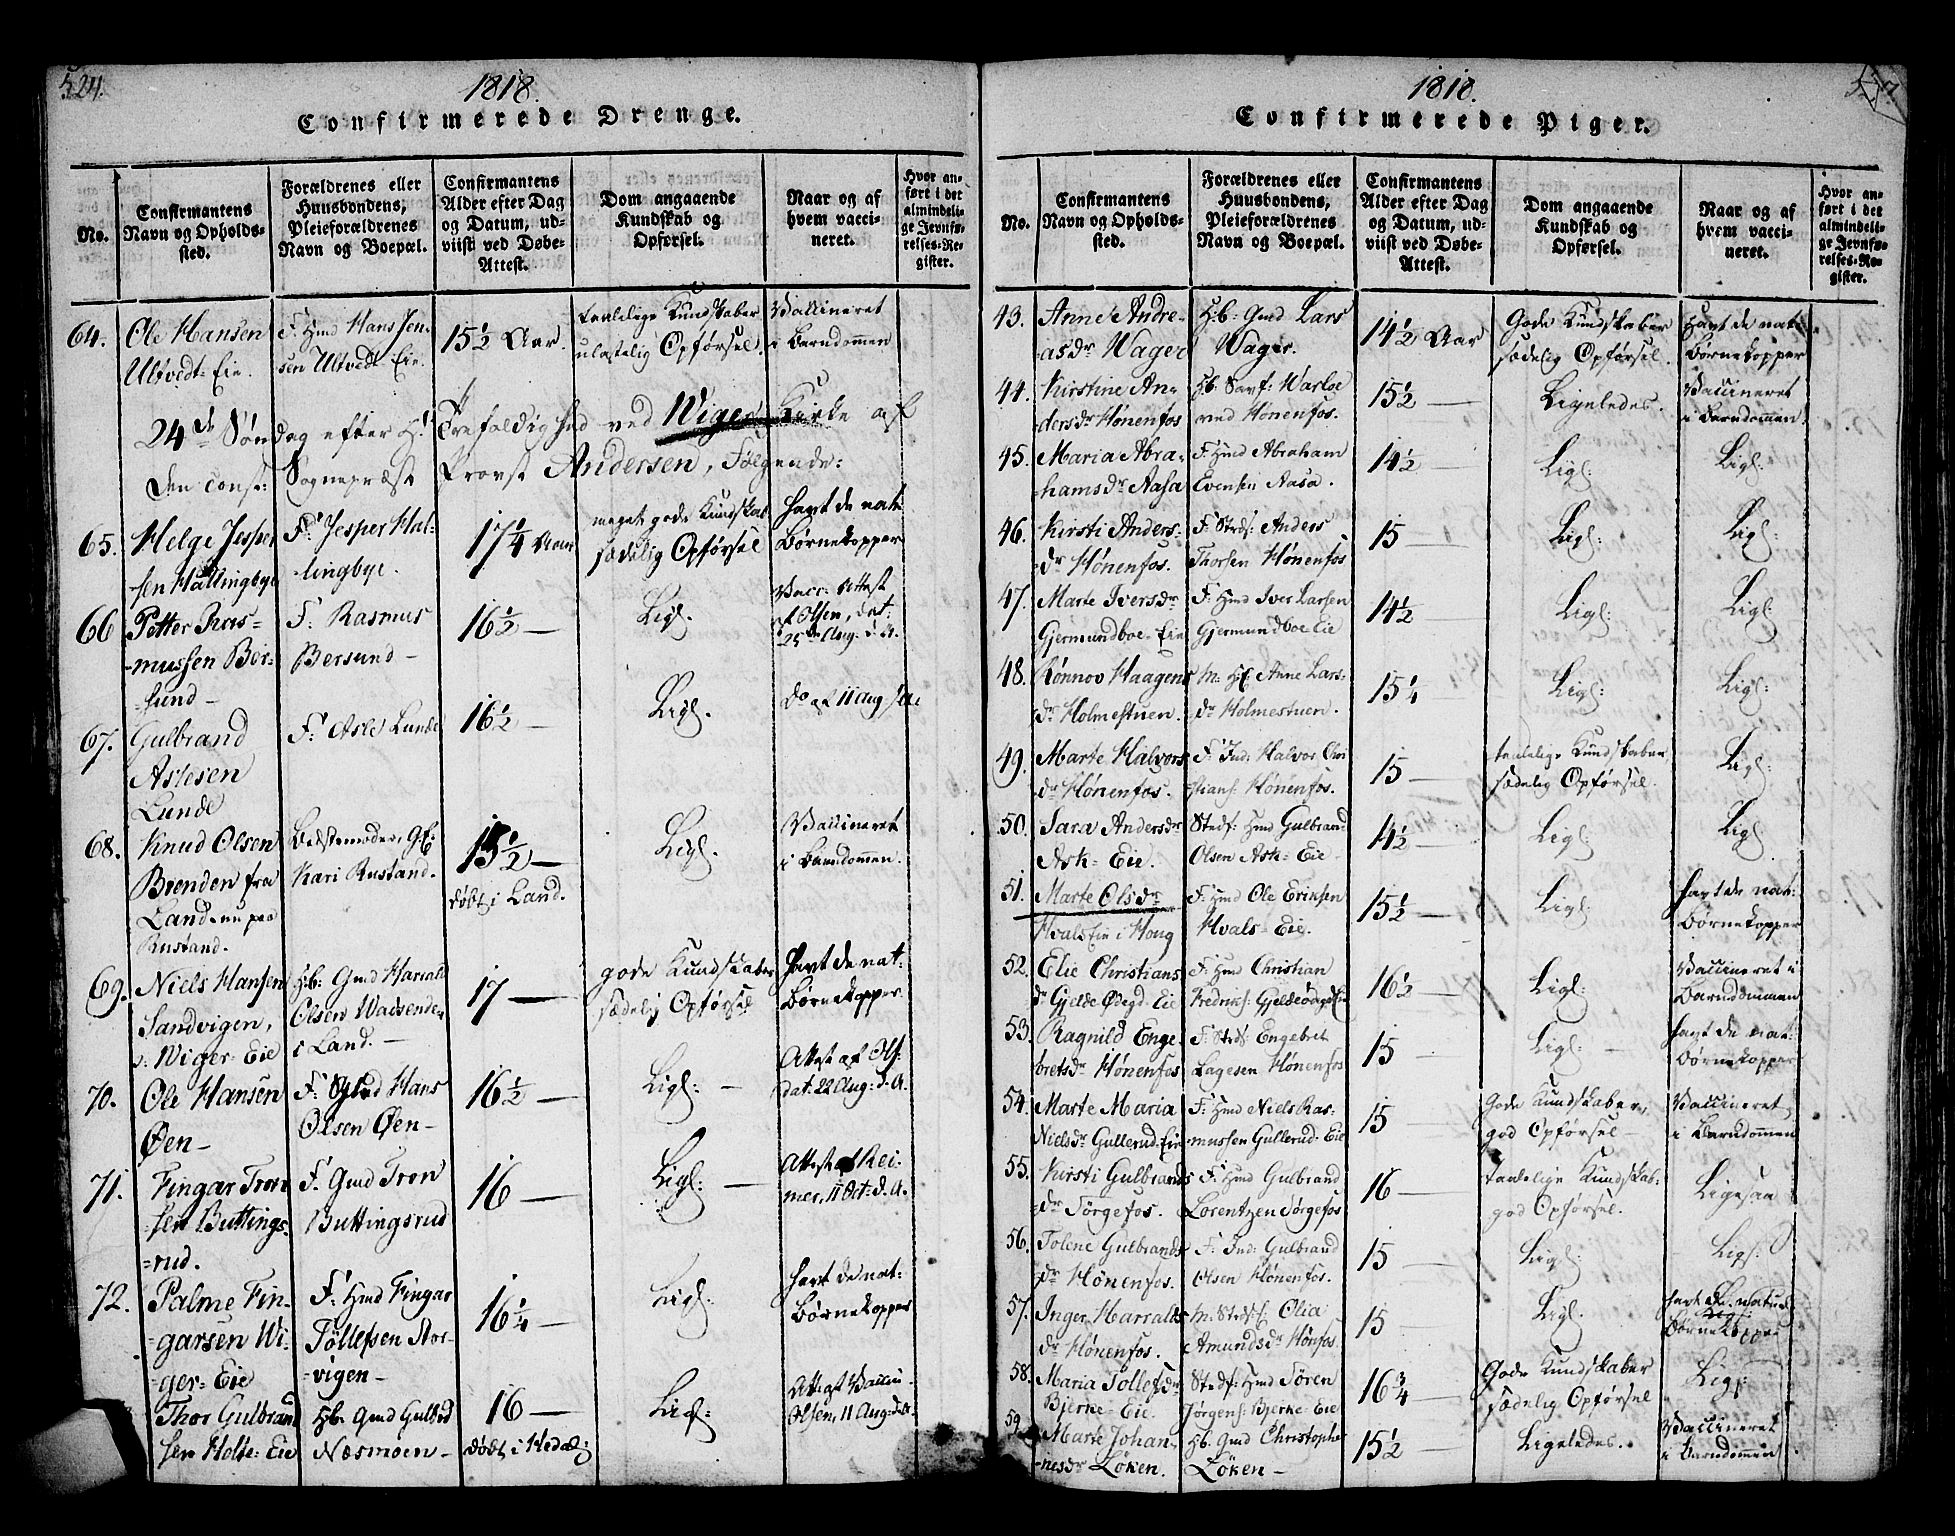 524.
1818.
Confirmerede Drenge.
No.
Confirmantens
Navn og Opholds-
sted.
Forældrenes eller
Huusbondens,
Pleieforældrenes
Navn og Boepæl.
Confirmantens
Alder efter Dag
og Datum, ud-
viist ved Døbe-
Attest.
Dom angaaende
Kundskab og
Opførsel.
Naar og af
hvem vacci-
neret.
Hvor an-
ført i det
almindeli-
ge Jevnfø-
relses-Re-
gister.
64.
Ole Hansen
Ultvedt-Eie.
F. Hmd Hans Jen-
sen Ultvedt-Eie.
15½ Aar.
taalelige Kundskaber
ulastelig Opførsel.
Vaccineret
i Barndommen
24de Søndag efter H: Trefoldighed ved Wiger Kirke af
den const: Sognepræst Provst Andersen, Følgende:
65.
Helge Jesper
sen Hallingbye
F. Jesper Hal-
lingbye.
17¼ Aar
meget gode Kundskab
sædelig Opførsel
havt de nat:
Børnekopper
66
Petter Ras=
-mussen Ber-
=sund-
F. Rasmus
Bersund-
16½ —
Ligl.
Vacc: Attest
af Olsen, dat:
25de Aug. d. A.
67.
Gulbrand
Aslesen
Lunde
F. Asle Lunde
16½ —
Ligl.
do af 11 Aug
68.
Knud Olsen
Brenden fra
Land. nu paa
Rustand.
Bedstemoder,
Kari Rustand.
15½ —
født i Land.
Ligl.
Vaccineret
i Barndommen.
69.
Niels Hansen
Sandvigen,
Wiger-Eie
Hb: Gmd Harrald
Olsen
i Land. —
17 —
gode Kundskaber
sædelig Opførsel
havt de nat:
Børnekopper.
70.
Ole Hansen
Øen-
F. Hans
Olsen Øen-
16½ —
Ligl: —
Attest af Ols.
dat: 22 Aug: d. A.
71.
Fingar Tron
sen Buttings-
=rud.
F. Gmd Tron
Buttingsrud
16 —
Ligl: —
Attest af Rei-
mer, 11 Oct: d. A.
72.
Palme Fin-
=garsen Wi-
ger-Eie
F. Hmd Fingar
Tollefsen Stor-
-vigen-
16¼ —
Ligl.
havt de nat:
Børnekopper
Thor Gulbrand
sen Holte-Eie
Hb. Gmd
Næsmoen-
16 —
født i Hedal:
Ligl:
Attest Vaccin-
Olsen, 11 Aug: d. A.
1818.
Confirmerede Piger.
No.
Confirmantens
Navn og Opholds-
sted.
Forældrenes eller
Huusbondens,
Pleieforældrenes
Navn og Boepæl.
Confirmantens
Alder efter Dag
og Datum, ud-
viist ved Døbe-
Attest.
Dom angaaende
Kundskab og
Opførsel.
Naar og af
hvem vacci-
neret.
Hvor an-
ført i det
almindeli-
ge Jevnfø-
relses-Re-
gister.
43.
Anne Andre-
asdr Wager
Hb: Gmd Lars
Wager.
14½ Aar
Gode Kundskaber
sædelig Opførsel.
Havt de nat:
Børnekopper
44.
Kirstine An-
dersdr Hønenfos
Hb:
ved Hønenfos.
15½ —
Ligeledes.
Vaccineret
i Barndommen
45.
Maria Abra-
hamsdr Aasa
F. Hmd Abraham
Evensen Aasa.
14½ —
Ligl:
Ligl.
46.
Kirsti Anders-
dr Hønenfos.
F. Anders
Thorsen Hønenfos
15 —
Ligl:
Ligl:
47.
Marte Iversdr
Gjermundboe-Eie
F. Hmd Iver Larsen
Gjermundboe Eie
14½ —
Ligl:
Ligl:
48.
Rønnov Haagens
dr Holmestuen.
M: Anne Lars-
dr Holmestuen.
15¼
Ligl:
Ligl:
49.
Marte Halvors
dr Hønenfos.
F. Ind: Halvor Chri
stians: Hønenfos.
15 —
taalelige Kundskaber
sædelig Opførsel.
Ligl:
50.
Sara Andersdr
Ask-Eie.
Stedf: Hmd Gulbrand
Olsen Ask-Eie-
14½ —
Ligl:
Ligl
51.
Marte Olsdr
Hvals Eie i Houg
F. Hmd Ole Eriksen
Hvals-Eie.
15½ —
Ligl
havt de nat:
Børnekopper
52.
Elie Christians
dr Gjelde Ødegd-Eie
F. Hmd Christian
Fredriks: Gjeldeødegd Eie
16½ —
Ligl:
Vaccineret i
Barndommen
53.
Ragnild Enge
bretsdr Hønenfos
F. Engebret
Lagesen Hønenfos
15 —
Ligl: —
havt de nat:
Børnekopper
54.
Marte Maria
Nielsdr Gullerud-Eie
F. Hmd Niels Ras-
mussen Gullerud-Eie
15 —
Gode Kundskaber,
god Opførsel —
Vaccineret
i Barndommen
55.
Kirsti Gulbrands
dr Jørgefos.
F. Hmd Gulbrand
Lorentzen Jørgefos
16 —
Taalelige Kundskab-
god Opførsel.
Ligesaa
56.
Tolene Gulbrands
dr Hønenfos.
F. Ind: Gulbrand
Olsen Hønenfos.
15 —
Ligl:
Ligl:
57.
Inger Harralds
dr Hønenfos.
M: Olia
Amundsdr Hønfos
15 —
Ligl.
havt de natur
Ligl:
Børnekopper
58.
Maria Tollefsdr
Bjerke-Eie.
Stedf: Hmd Søren
Jørgens: Bjerke-Eie
16¾ —
Gode Kundskaber
sædelig Opførsel
Ligl:
59.
Marte Johan-
-nesdr Løken.
Hb. Gmd Christopher
Løken-
15½ —
Ligeledes.
Vaccineret
i Barndommen